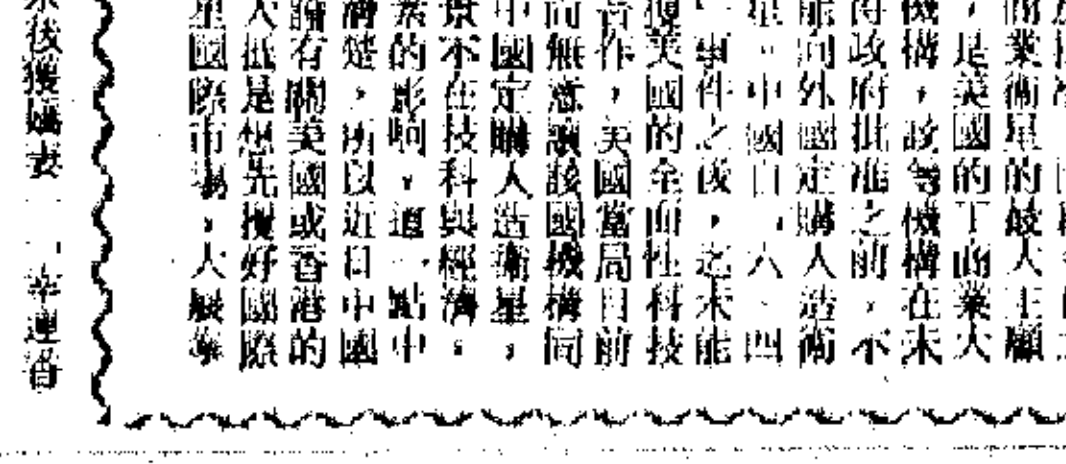 商業衛星的最大主顧
，是美國的工商業大
機構，該等機構在未
得政府批准之前，不
能向外國定購人造衛
星。中國自「六、四
」事件之後，迄未能
美國的全面性科技
合作，美國當局目前
而無意讓該國機構同
中國定購人造衛星，
景不在技科與經濟，
的影响，這一點中
楚，所以近日中國
論有關美國或香港的
大低是想先攪好國際
星國際市場，大展拳
後獲嬌妻
幸運